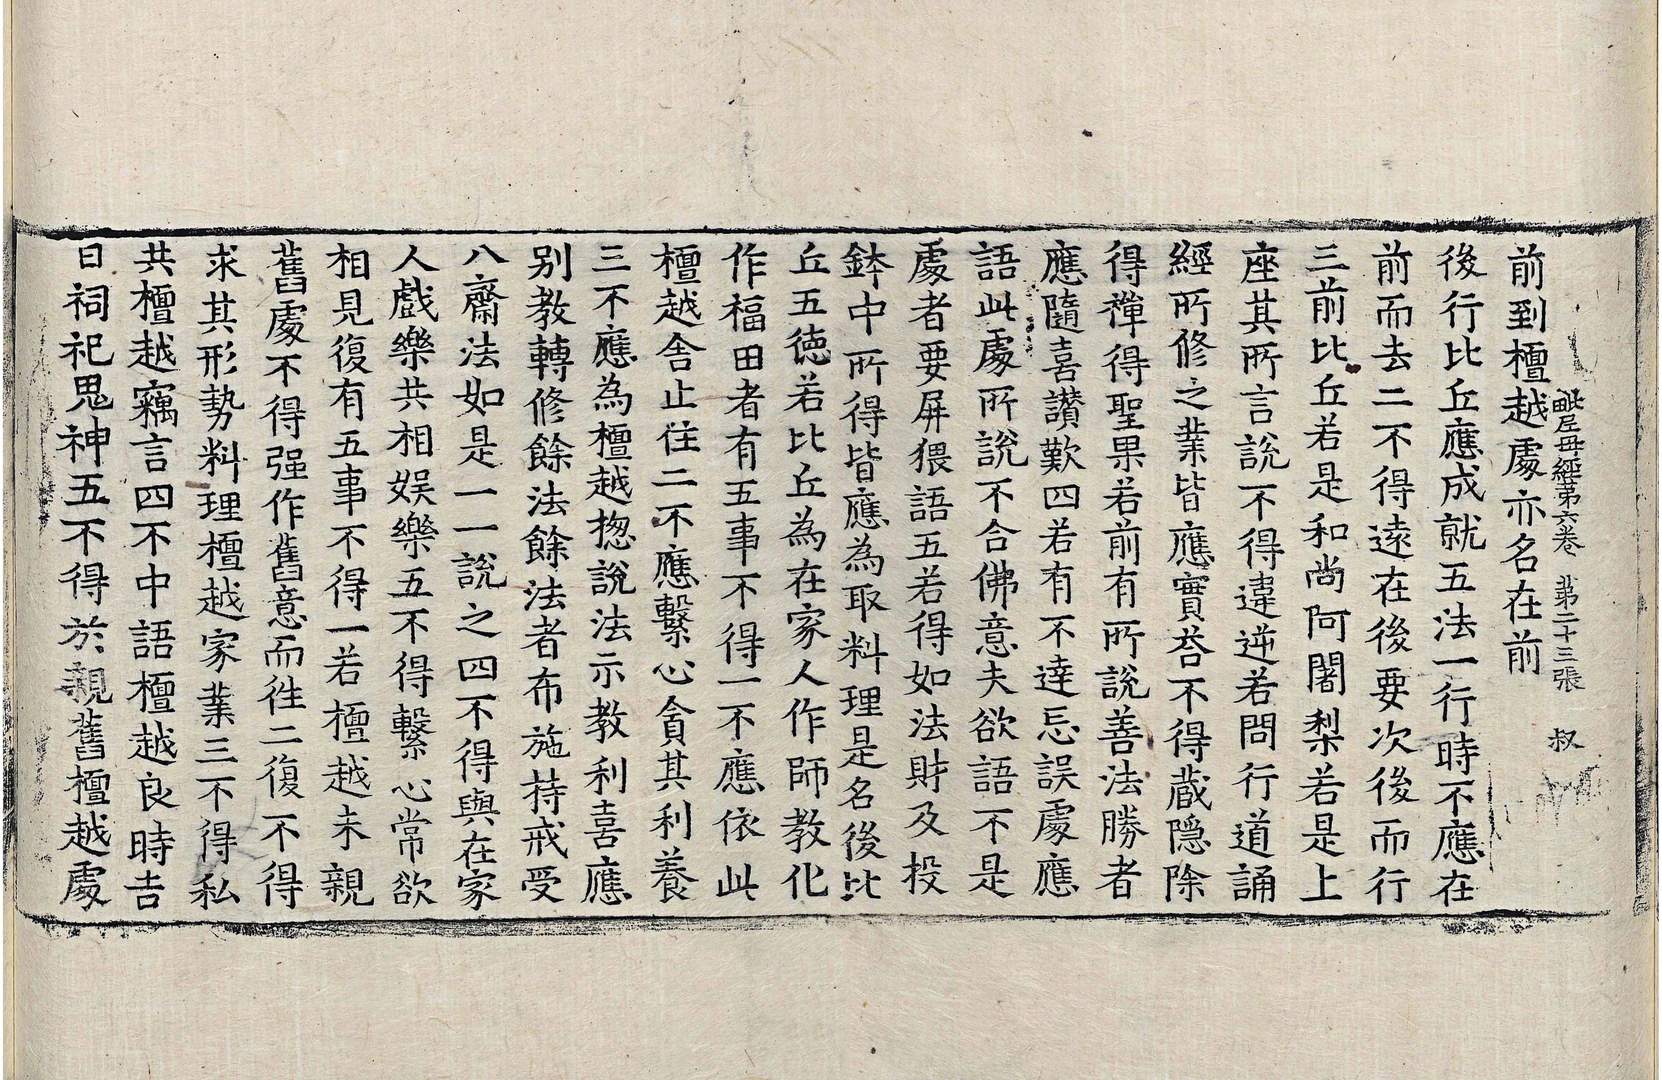 毗尼母經第六卷　第二十三張　叔
前到檀越處亦名在前
後行比丘應成就五法一行時不應在
前而去二不得遠在後要次後而行
三前比丘若是和尚阿闍梨若是上
座其所言說不得違逆若問行道誦
經所修之業皆應實荅不得藏隱除
得禪得聖果若前有所說善法勝者
應隨喜讃歎四若有不達忘誤處應
語此處所說不合佛意夫欲語不是
處者要屏猥語五若得如法財及投
鉢中所得皆應為取料理是名後比
丘五德若比丘為在家人作師教化
作福田者有五事不得一不應依此
檀越舍止住二不應繫心貪其利養
三不應為檀越揔說法示教利喜應
別教轉修餘法餘法者布施持戒受
八齋法如是一一說之四不得與在家
人戲樂共相娛樂五不得繫心常欲
相見復有五事不得一若檀越未親
舊處不得强作舊意而徃二復不得
求其形勢料理檀越家業三不得私
共檀越竊言四不中語檀越良時吉
日祠祀鬼神五不得於親舊檀越處